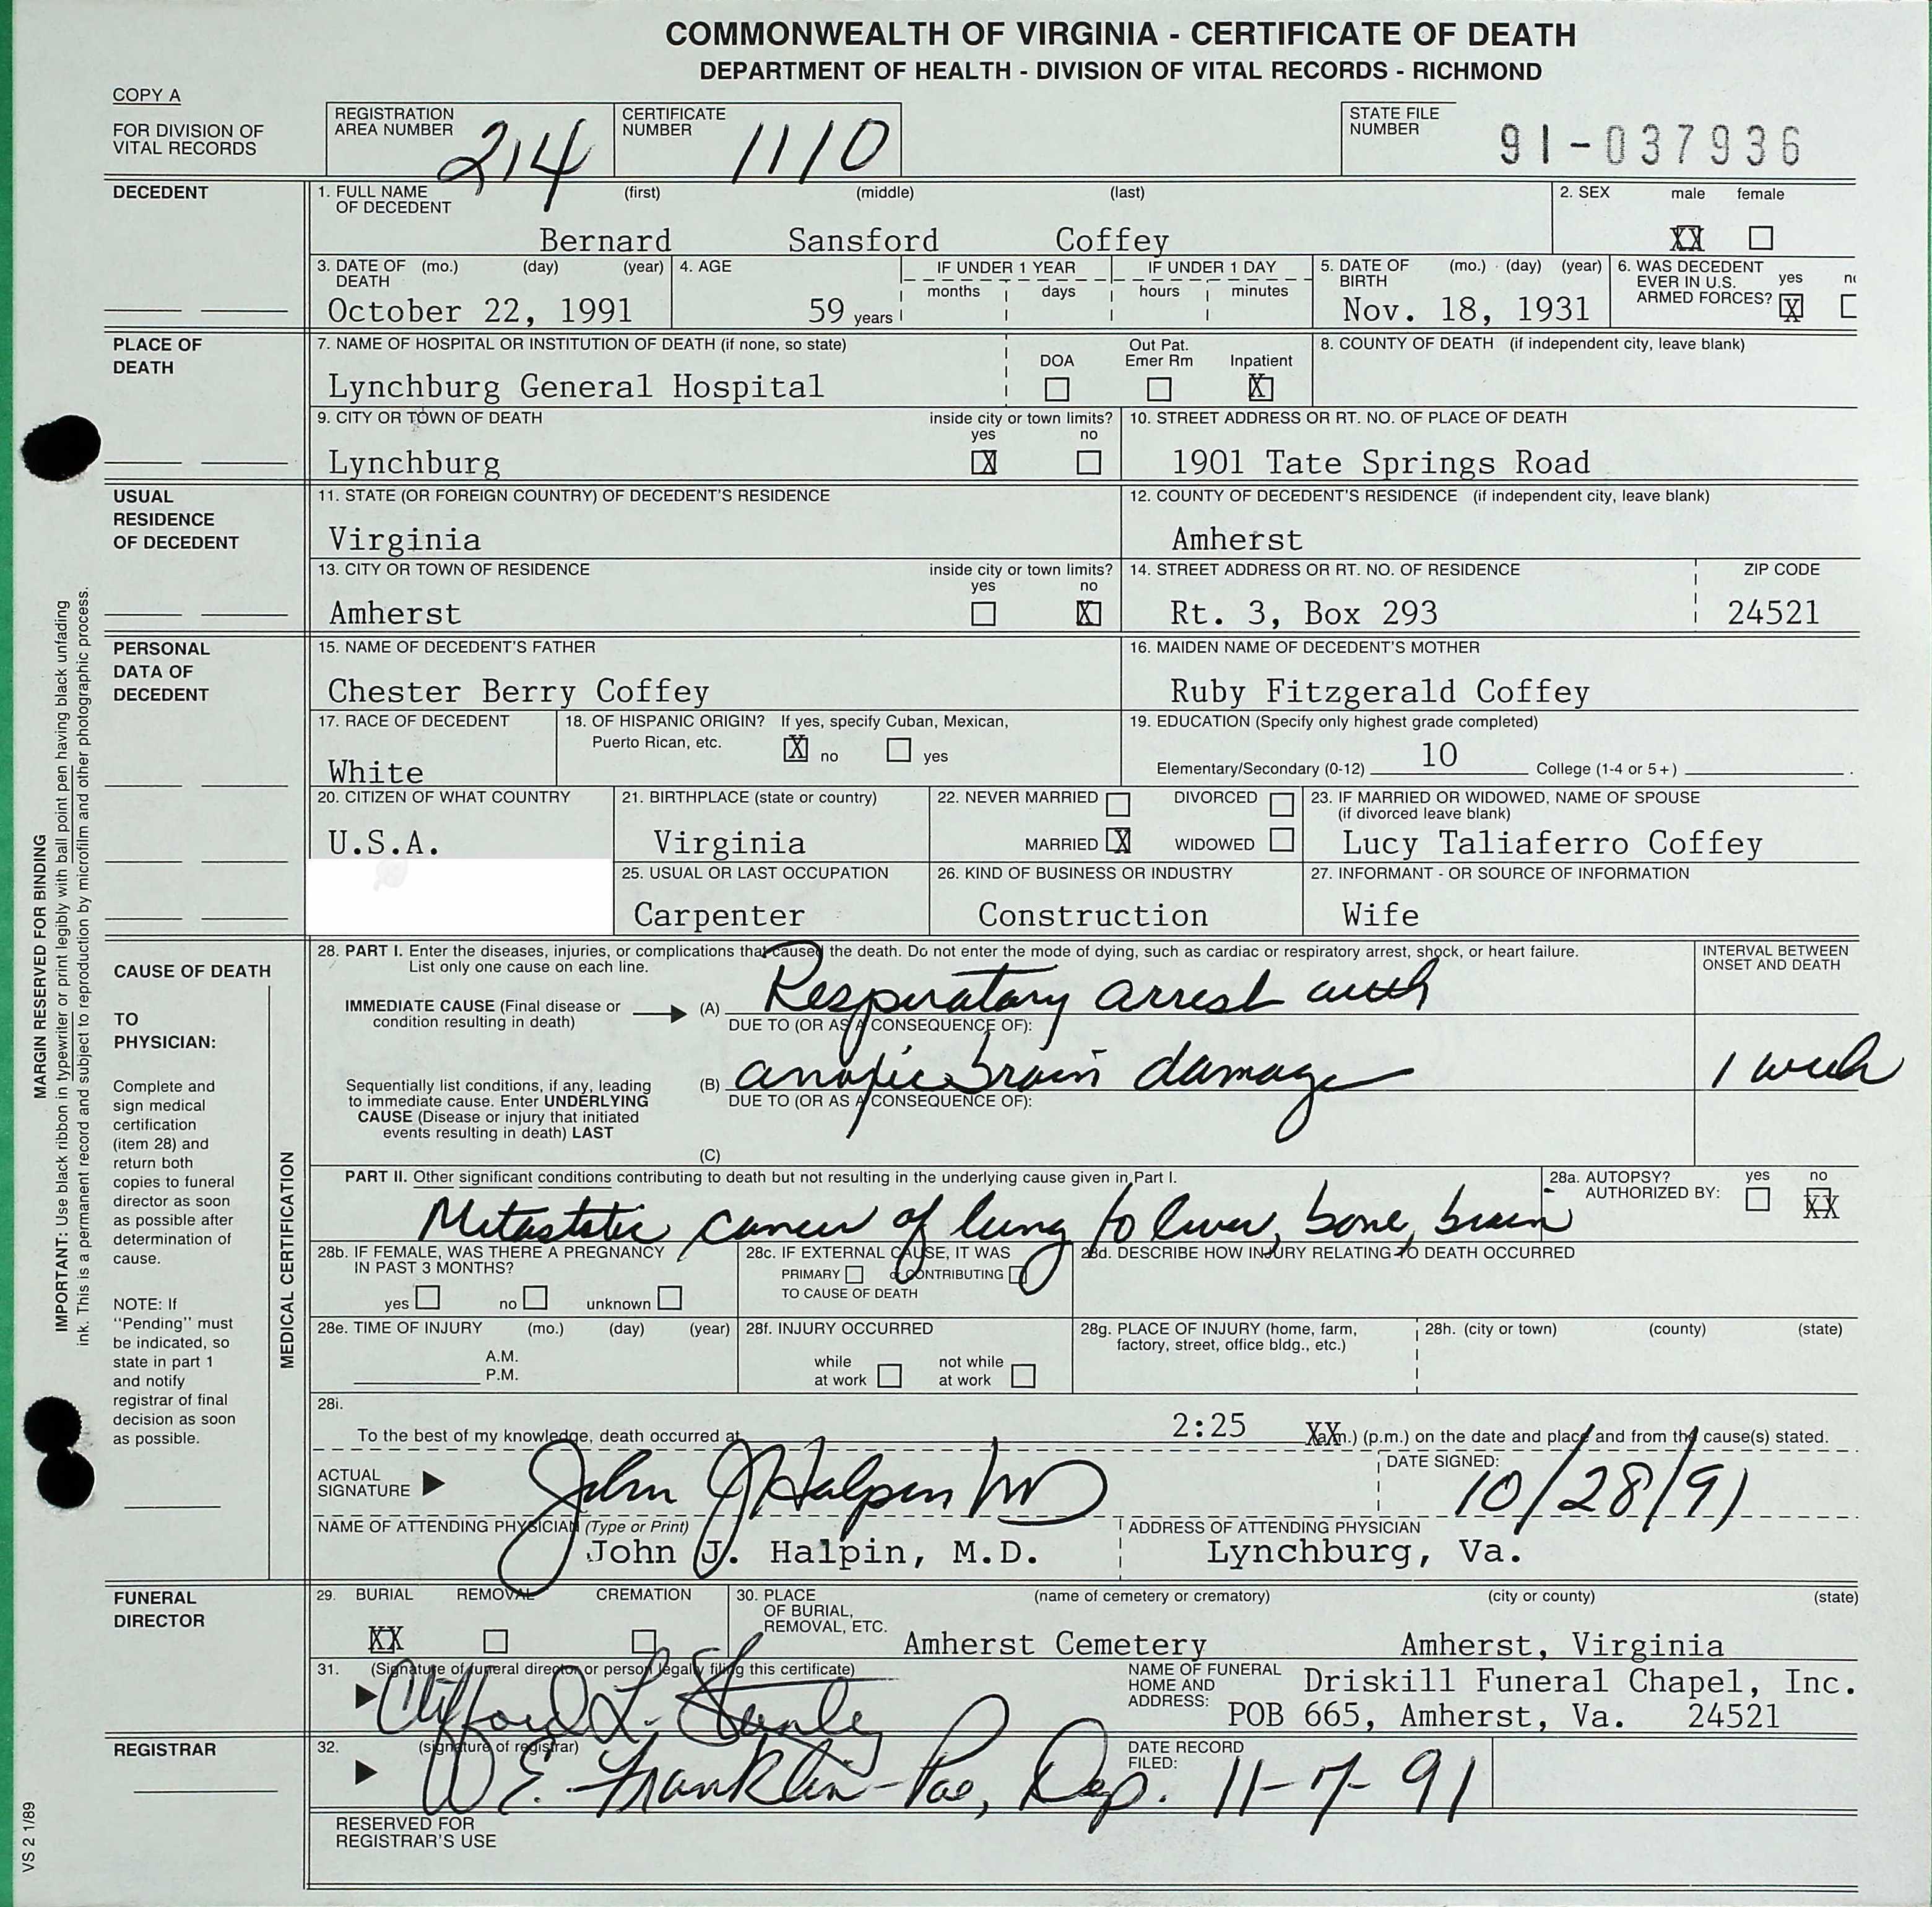 COMMONWEALTH OF VIRGINIA - CERTIFICATE OF DEATH
DEPARTMENT OF HEALTH - DIVISION OF VITAL RECORDS - RICHMOND
COPY A
FOR DIVISION OF VITAL RECORDS
REGISTRATION AREA NUMBER 214
CERTIFICATE NUMBER 1110
STATE FILE NUMBER 91-037936
DECEDENT
1. FULL NAME OF DECEDENT (first) (middle) (last)
Bernard Sansford Coffey
2. SEX male female
XX
3. DATE OF DEATH (mo.) (day) (year)
October 22, 1991
4. AGE
59 years
IF UNDER 1 YEAR
months days
IF UNDER 1 DAY
hours minutes
5. DATE OF BIRTH (mo.) (day) (year)
Nov. 18, 1931
6. WAS DECEDENT EVER IN U.S. ARMED FORCES? yes
X
PLACE OF DEATH
7. NAME OF HOSPITAL OR INSTITUTION OF DEATH (if none, so state)
Lynchburg General Hospital
DOA
Out Pat. Emer Rm
Inpatient
X
8. COUNTY OF DEATH (if independent city, leave blank)
9. CITY OR TOWN OF DEATH
Lynchburg
inside city or town limits?
yes no
X
10. STREET ADDRESS OR RT. NO. OF PLACE OF DEATH
1901 Tate Springs Road
USUAL RESIDENCE OF DECEDENT
11. STATE (OR FOREIGN COUNTRY) OF DECEDENT'S RESIDENCE
Virginia
12. COUNTY OF DECEDENT'S RESIDENCE (if independent city, leave blank)
Amherst
13. CITY OR TOWN OF RESIDENCE
Amherst
inside city or town limits?
yes no
X
14. STREET ADDRESS OR RT. NO. OF RESIDENCE
Rt. 3, Box 293
ZIP CODE
24521
PERSONAL DATA OF DECEDENT
15. NAME OF DECEDENT'S FATHER
Chester Berry Coffey
16. MAIDEN NAME OF DECEDENT'S MOTHER
Ruby Fitzgerald Coffey
17. RACE OF DECEDENT
White
18. OF HISPANIC ORIGIN? If yes, specify Cuban, Mexican, Puerto Rican, etc.
X no yes
19. EDUCATION (Specify only highest grade completed)
Elementary/Secondary (0-12) 10 College (1-4 or 5+)
20. CITIZEN OF WHAT COUNTRY
U.S.A.
21. BIRTHPLACE (state or country)
Virginia
22. NEVER MARRIED DIVORCED
MARRIED X WIDOWED
23. IF MARRIED OR WIDOWED, NAME OF SPOUSE (if divorced leave blank)
Lucy Taliaferro Coffey
25. USUAL OR LAST OCCUPATION
Carpenter
26. KIND OF BUSINESS OR INDUSTRY
Construction
27. INFORMANT - OR SOURCE OF INFORMATION
Wife
CAUSE OF DEATH
TO PHYSICIAN:
Complete and sign medical certification (item 28) and return both copies to funeral director as soon as possible after determination of cause.
NOTE: If "Pending" must be indicated, so state in part 1 and notify registrar of final decision as soon as possible.
MEDICAL CERTIFICATION
28. PART I. Enter the diseases, injuries, or complications that caused the death. Do not enter the mode of dying, such as cardiac or respiratory arrest, shock, or heart failure.
List only one cause on each line.
INTERVAL BETWEEN ONSET AND DEATH
IMMEDIATE CAUSE (Final disease or condition resulting in death)
(A) Respiratory arrest with
DUE TO (OR AS A CONSEQUENCE OF):
Sequentially list conditions, if any, leading to immediate cause. Enter UNDERLYING CAUSE (Disease or injury that initiated events resulting in death) LAST
(B) anoxic brain damage
1 week
DUE TO (OR AS A CONSEQUENCE OF):
(C)
PART II. Other significant conditions contributing to death but not resulting in the underlying cause given in Part I.
Metastatic cancer of lung to liver, bone, brain
28a. AUTOPSY? yes no
AUTHORIZED BY:
XX
28b. IF FEMALE, WAS THERE A PREGNANCY IN PAST 3 MONTHS?
yes no unknown
28c. IF EXTERNAL CAUSE, IT WAS
PRIMARY or CONTRIBUTING
TO CAUSE OF DEATH
28d. DESCRIBE HOW INJURY RELATING TO DEATH OCCURRED
28e. TIME OF INJURY (mo.) (day) (year)
A.M.
P.M.
28f. INJURY OCCURRED
while at work
not while at work
28g. PLACE OF INJURY (home, farm, factory, street, office bldg., etc.)
28h. (city or town) (county) (state)
28i.
To the best of my knowledge, death occurred at 2:25 XX (a.m.) (p.m.) on the date and place and from the cause(s) stated.
ACTUAL SIGNATURE John J Halpin MD
DATE SIGNED: 10/28/91
NAME OF ATTENDING PHYSICIAN (Type or Print)
John J. Halpin, M.D.
ADDRESS OF ATTENDING PHYSICIAN
Lynchburg, Va.
FUNERAL DIRECTOR
29. BURIAL REMOVAL CREMATION
XX
30. PLACE OF BURIAL, REMOVAL, ETC. (name of cemetery or crematory) (city or county) (state)
Amherst Cemetery Amherst, Virginia
31. (Signature of funeral director or person legally filing this certificate)
Clifford L.
NAME OF FUNERAL HOME AND ADDRESS:
Driskill Funeral Chapel, Inc.
POB 665, Amherst, Va. 24521
REGISTRAR
32. (signature of registrar)
W E. Franklin-Poe, Dep.
DATE RECORD FILED: 11-7-91
RESERVED FOR REGISTRAR'S USE
MARGIN RESERVED FOR BINDING
IMPORTANT: Use black ribbon in typewriter or print legibly with ball point pen having black unfading
ink. This is a permanent record and subject to reproduction by microfilm and other photographic process.
VS 2 1/89